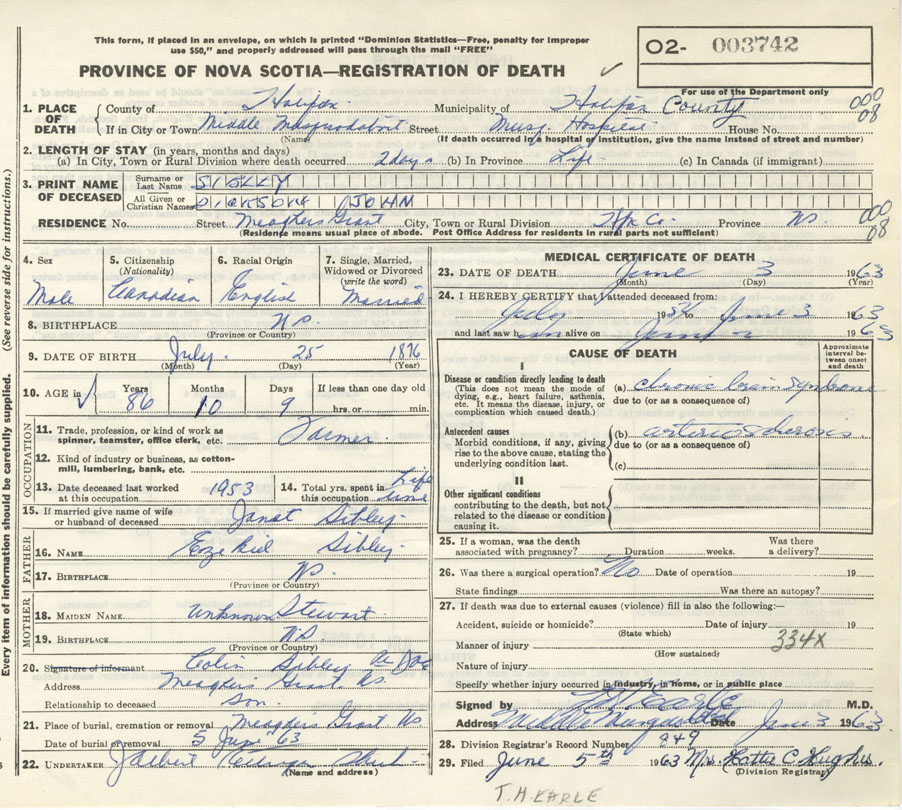 This form, if placed in an envelope, on which is printed "Dominion Statistics—Free, penalty for improper
use $50," and properly addressed will pass through the mail "FREE"
O2- 003742
PROVINCE OF NOVA SCOTIA—REGISTRATION OF DEATH ✓
For use of the Department only
1. PLACE OF DEATH
County of Halifax Municipality of Halifax County 000
If in City or Town Middle Musquodoboit Street Musq. Hospital House No. 08
(Name) (If death occurred in a hospital or institution, give the name instead of street and number)
2. LENGTH OF STAY (in years, months and days)
(a) In City, Town or Rural Division where death occurred 2 days (b) In Province Life (c) In Canada (if immigrant)
3. PRINT NAME OF DECEASED
Surname or Last Name SIBLEY
All Given or Christian Names DICKSON JOHN
RESIDENCE No. Street Meaghers Grant City, Town or Rural Division Hfx Co. Province NS. 000
(Residence means usual place of abode. Post Office Address for residents in rural parts not sufficient) 08
4. Sex Male
5. Citizenship (Nationality) Canadian
6. Racial Origin English
7. Single, Married, Widowed or Divorced (write the word) Married
8. BIRTHPLACE NS.
(Province or Country)
9. DATE OF BIRTH July 25 1876
(Month) (Day) (Year)
10. AGE in ✓ Years 86 Months 10 Days 9 If less than one day old hrs. or min.
OCCUPATION
11. Trade, profession, or kind of work as spinner, teamster, office clerk, etc. Farmer.
12. Kind of industry or business, as cotton-mill, lumbering, bank, etc.
13. Date deceased last worked at this occupation 1953
14. Total yrs. spent in this occupation Life time
15. If married give name of wife or husband of deceased Janet Sibley
FATHER
16. NAME Ezekiel Sibley
17. BIRTHPLACE NS.
(Province or Country)
MOTHER
18. MAIDEN NAME Unknown Stewart
19. BIRTHPLACE NS
(Province or Country)
20. Signature of informant Colin Sibley
Address Meaghers Grant NS.
Relationship to deceased son.
21. Place of burial, cremation or removal Meaghers Grant NS
Date of burial or removal 5 June 63
22. UNDERTAKER
(Name and address)
MEDICAL CERTIFICATE OF DEATH
23. DATE OF DEATH June 3 1963
(Month) (Day) (Year)
24. I HEREBY CERTIFY that I attended deceased from:
July 1956 to June 3 1963
and last saw h im alive on June 1963
CAUSE OF DEATH
Approximate interval between onset and death
I
Disease or condition directly leading to death
(This does not mean the mode of dying, e.g., heart failure, asthenia, etc. It means the disease, injury, or complication which caused death.)
(a) chronic brain syndrome
due to (or as a consequence of)
Antecedent causes
Morbid conditions, if any, giving rise to the above cause, stating the underlying condition last.
(b) arteriosclerosis.
due to (or as a consequence of)
(c)
II
Other significant conditions
contributing to the death, but not related to the disease or condition causing it.
25. If a woman, was the death associated with pregnancy? Duration weeks. Was there a delivery?
26. Was there a surgical operation? No Date of operation 19
State findings Was there an autopsy?
27. If death was due to external causes (violence) fill in also the following:—
Accident, suicide or homicide? Date of injury 19
(State which)
Manner of injury 334X
(How sustained)
Nature of injury
Specify whether injury occurred in industry, in home, or in public place
Signed by T H Earle M.D.
Address Middle Musquodoboit Date June 3 1963
28. Division Registrar's Record Number 249
29. Filed June 5th 1963 Mrs. Hattie C Hughes.
(Division Registrar)
T. H EARLE
(See reverse side for instructions.)
Every item of information should be carefully supplied.